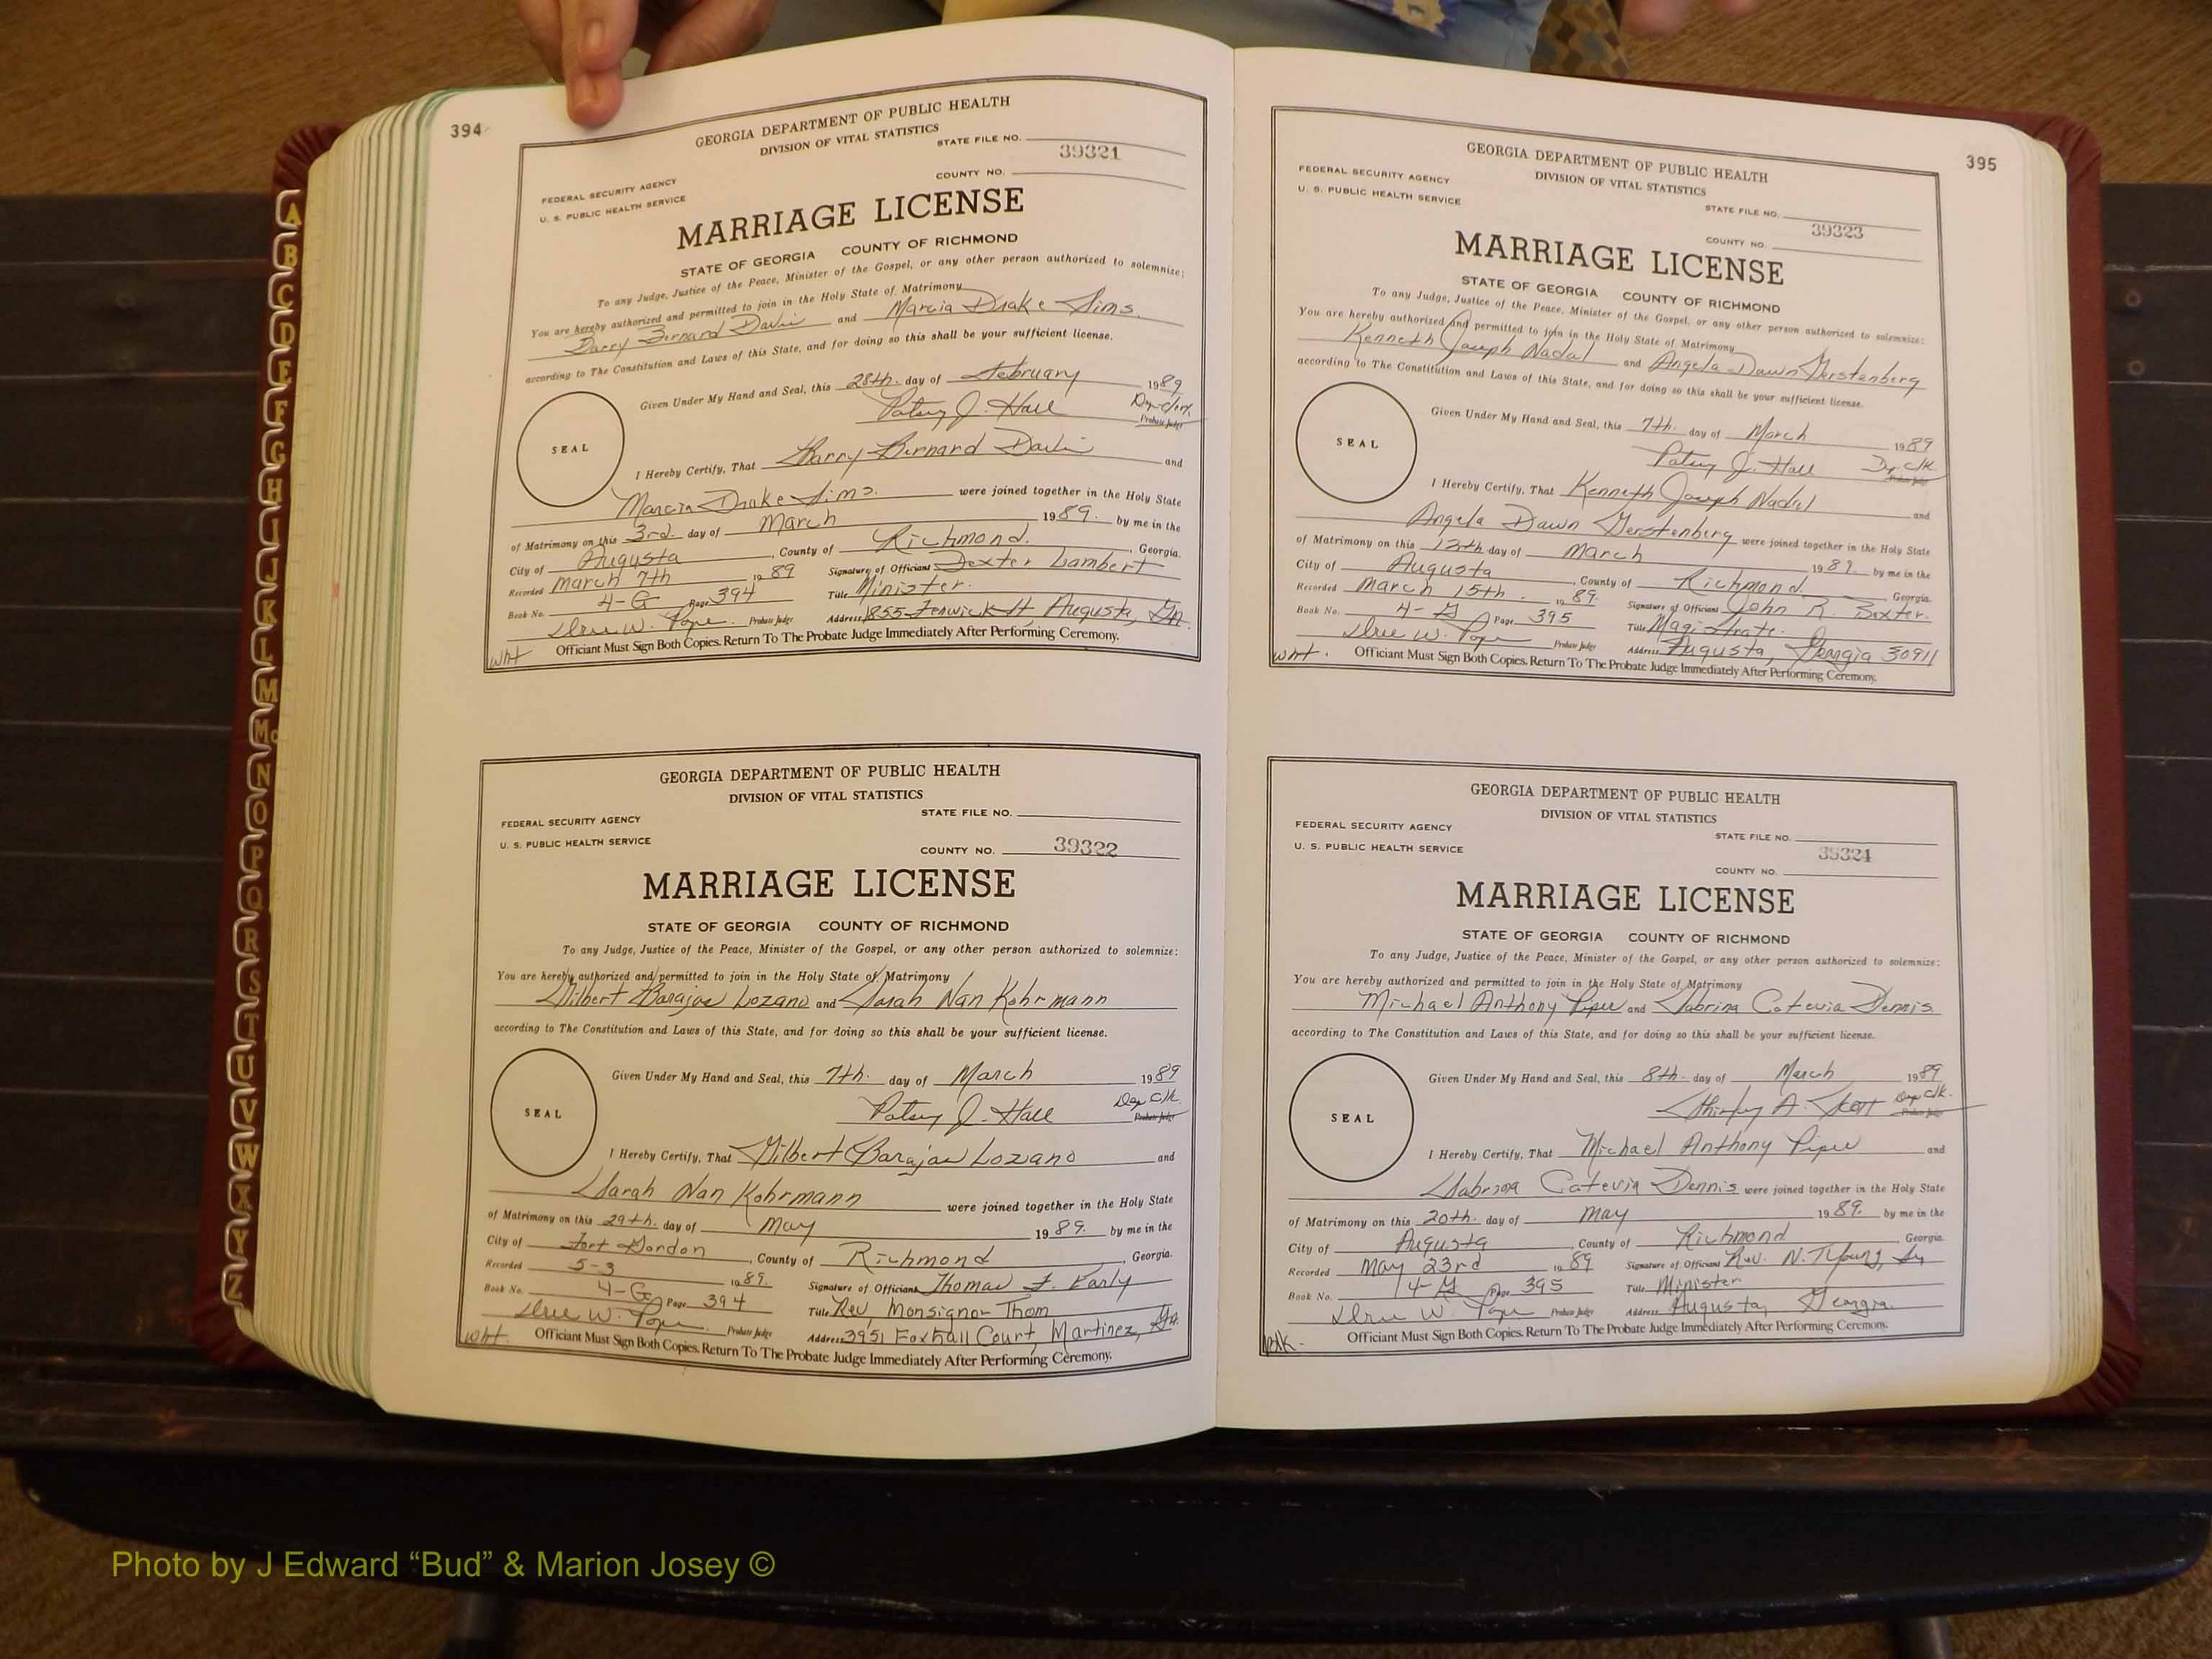 394
GEORGIA DEPARTMENT OF PUBLIC HEALTH
DIVISION OF VITAL STATISTICS
STATE FILE NO.
39321
FEDERAL SECURITY AGENCY
COUNTY NO.
U. S. PUBLIC HEALTH SERVICE
MARRIAGE LICENSE
STATE OF GEORGIA COUNTY OF RICHMOND
To any Judge, Justice of the Peace, Minister of the Gospel, or any other person authorized to solemnize:
You are hereby authorized and permitted to join in the Holy State of Matrimony
Bernard and Marcia Drake Sims.
according to The Constitution and Laws of this State, and for doing so this shall be your sufficient license.
Given Under My Hand and Seal, this 28th. day of February 1989
Patsy J. Hall Dep-clerk
Probate Judge
SEAL
I Hereby Certify, That Bernard and
Marcia Drake Sims. were joined together in the Holy State
of Matrimony on this 3rd. day of March 1989. by me in the
City of Augusta, County of Richmond., Georgia.
Recorded March 7th 1989 Signature of Officiant Dexter Lambert
Book No. 4-G Page 394 Title Minister.
W. Pope. Probate Judge Address 1855 Fenwick St Augusta, Ga.
wht Officiant Must Sign Both Copies. Return To The Probate Judge Immediately After Performing Ceremony.
GEORGIA DEPARTMENT OF PUBLIC HEALTH
DIVISION OF VITAL STATISTICS
STATE FILE NO.
FEDERAL SECURITY AGENCY
U. S. PUBLIC HEALTH SERVICE
COUNTY NO. 39322
MARRIAGE LICENSE
STATE OF GEORGIA COUNTY OF RICHMOND
To any Judge, Justice of the Peace, Minister of the Gospel, or any other person authorized to solemnize:
You are hereby authorized and permitted to join in the Holy State of Matrimony
Gilbert Barajas Lozano and Sarah Nan Kohrmann
according to The Constitution and Laws of this State, and for doing so this shall be your sufficient license.
Given Under My Hand and Seal, this 7th. day of March 1989
Patsy J. Hall Dep Clk.
Probate Judge
SEAL
I Hereby Certify, That Gilbert Barajas Lozano and
Sarah Nan Kohrmann were joined together in the Holy State
of Matrimony on this 29th. day of May 1989. by me in the
City of Fort Gordon, County of Richmond, Georgia.
Recorded 5-3 1989. Signature of Officiant Thomas F. Early
Book No. 4-G Page 394 Title Rev Monsignor Thom
W. Pope. Probate Judge Address 3951 Foxhall Court, Martinez, Ga.
wht. Officiant Must Sign Both Copies. Return To The Probate Judge Immediately After Performing Ceremony.
395
GEORGIA DEPARTMENT OF PUBLIC HEALTH
DIVISION OF VITAL STATISTICS
FEDERAL SECURITY AGENCY
U. S. PUBLIC HEALTH SERVICE
STATE FILE NO.
39323
COUNTY NO.
MARRIAGE LICENSE
STATE OF GEORGIA COUNTY OF RICHMOND
To any Judge, Justice of the Peace, Minister of the Gospel, or any other person authorized to solemnize:
You are hereby authorized and permitted to join in the Holy State of Matrimony
Kenneth Joseph Nadal and Angela Dawn Gerstenberg
according to The Constitution and Laws of this State, and for doing so this shall be your sufficient license.
Given Under My Hand and Seal, this 7th. day of March 1989
Patsy J. Hall Dep Clk.
Probate Judge
SEAL
I Hereby Certify, That Kenneth Joseph Nadal and
Angela Dawn Gerstenberg were joined together in the Holy State
of Matrimony on this 12th day of March 1989. by me in the
City of Augusta, County of Richmond. Georgia.
Recorded March 15th. 1989. Signature of Officiant John R. Baxter.
Book No. 4-G Page 395 Title Magistrate.
W. Pope Probate Judge Address Augusta, Georgia 30911
wht. Officiant Must Sign Both Copies. Return To The Probate Judge Immediately After Performing Ceremony.
GEORGIA DEPARTMENT OF PUBLIC HEALTH
DIVISION OF VITAL STATISTICS
FEDERAL SECURITY AGENCY
STATE FILE NO.
U. S. PUBLIC HEALTH SERVICE
39324
COUNTY NO.
MARRIAGE LICENSE
STATE OF GEORGIA COUNTY OF RICHMOND
To any Judge, Justice of the Peace, Minister of the Gospel, or any other person authorized to solemnize:
You are hereby authorized and permitted to join in the Holy State of Matrimony
Michael Anthony Piper and Sabrina Catevia Dennis
according to The Constitution and Laws of this State, and for doing so this shall be your sufficient license.
Given Under My Hand and Seal, this 8th. day of March 1989
Shirley A. Scott Dep Clk.
Probate Judge
SEAL
I Hereby Certify, That Michael Anthony Piper and
Sabrina Catevia Dennis were joined together in the Holy State
of Matrimony on this 20th. day of May 1989. by me in the
City of Augusta, County of Richmond, Georgia.
Recorded May 23rd 1989 Signature of Officiant Rev. N. T. Young, Sr
Book No. 4-G Page 395 Title Minister
W. Pope Probate Judge Address Augusta, Georgia.
Officiant Must Sign Both Copies. Return To The Probate Judge Immediately After Performing Ceremony.
A
B
C
D
E
F
G
H
I
J
K
L
M
Mc
N
O
P
Q
R
S
T
U
V
W
X
Y
Z
Photo by J Edward “Bud” & Marion Josey ©